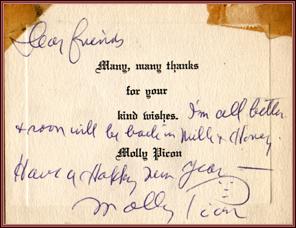 Dear friends
Many, many thanks
for your
kind wishes. I'm all better
& soon will be back in Milk & Honey.
Molly Picon
Have a Happy New Year —
Molly Picon